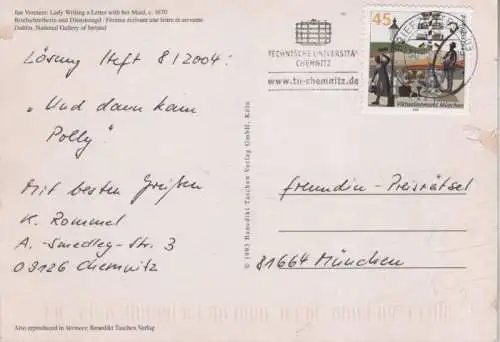 Jan Vermeer: Lady Writing a Letter with her Maid, c. 1670
Briefschreiberin und Dienstmagd · Femme écrivant une lettre et servante
Dublin, National Gallery of Ireland
Lösung Heft 8/2004:
„Und dann kam
Polly"
Mit besten Grüßen
K. Rommel
A.-Smedley-Str. 3
09126 Chemnitz
Also reproduced in Vermeer; Benedikt Taschen Verlag
© 1993 Benedikt Taschen Verlag GmbH, Köln
TECHNISCHE UNIVERSITÄ
CHEMNITZ
www.tu-chemnitz.de
45
Viktualienmarkt München
freundin-Preisrätsel
81664 München